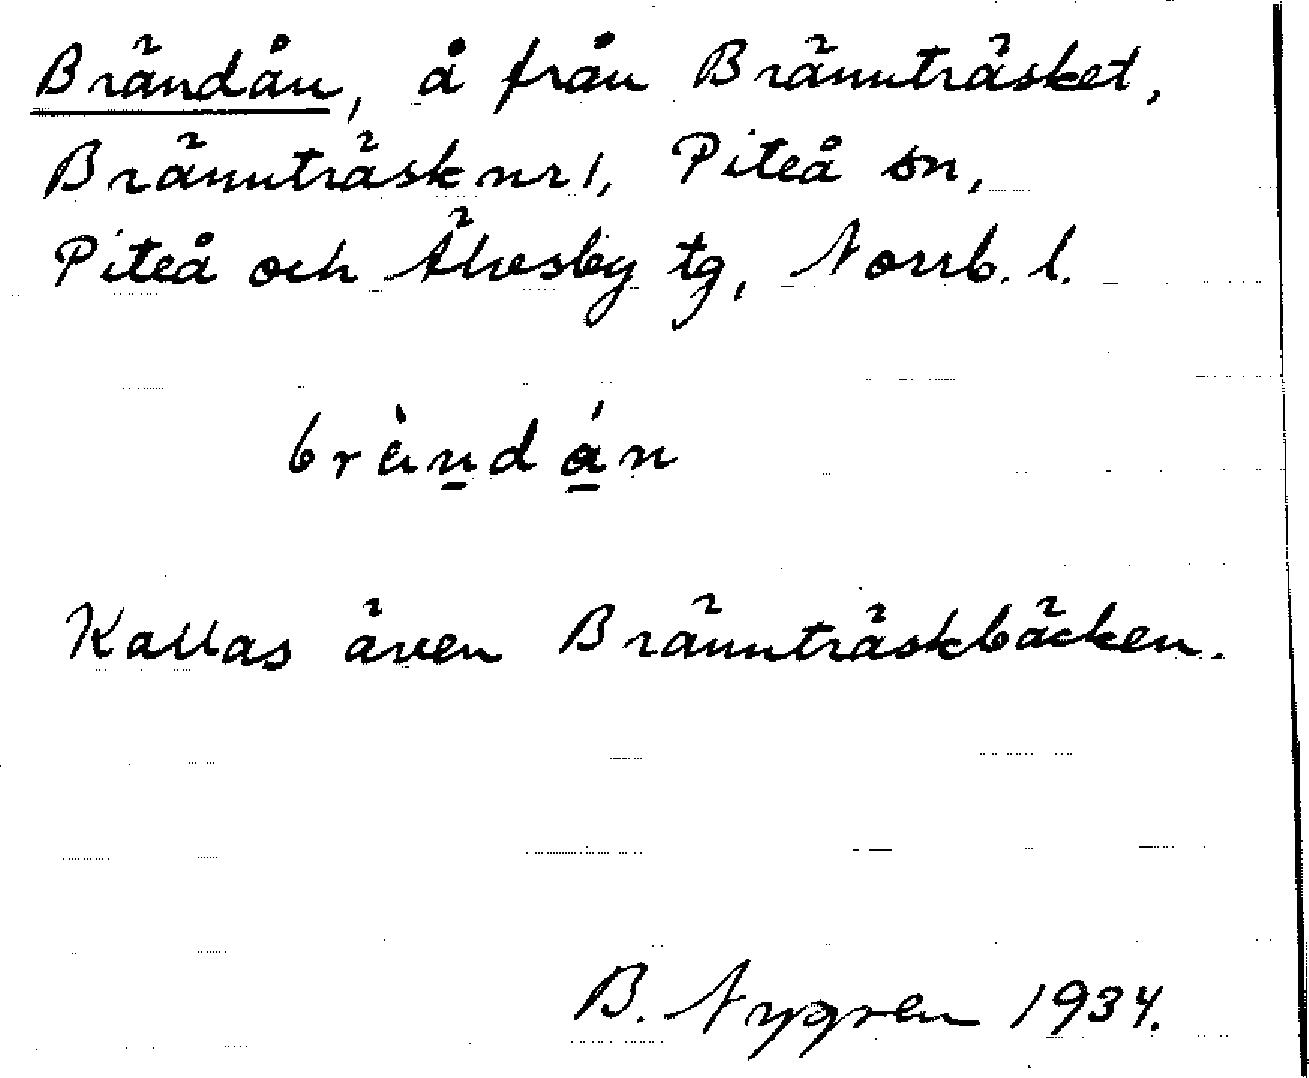 Brändån, å från Brännträsket,
Brännträsk nr 1, Piteå sn,
Piteå och Älvsby tg, Norrb. l.
brȁ̀n̲dǻ̲n
Kallas även Brännträskbäcken.
B. Nygren 1934.